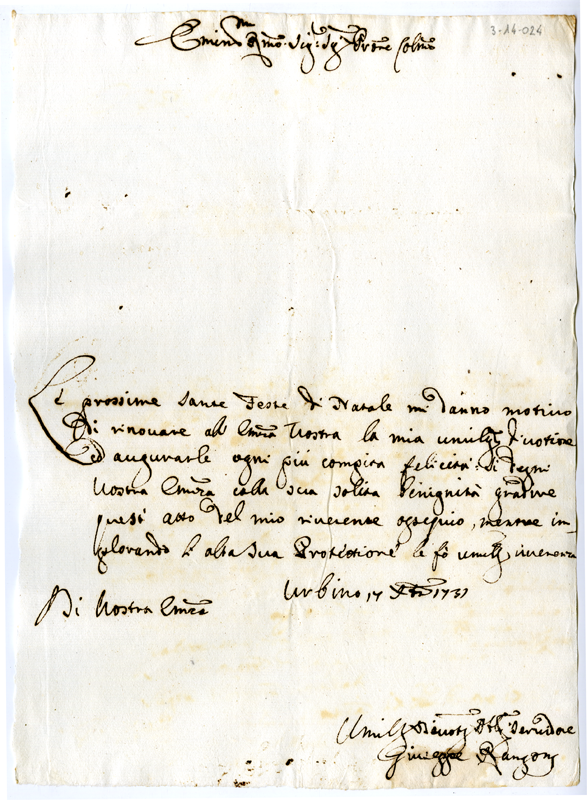 3-14-024
Emin.mo Rmo. Sig.r Sig.r Prone Colmo
Le prossime Sante Feste di Natale mi danno motivo
di rinovare all' Emza Vostra la mia umil.ma divotione
ed augurarle ogni più compita felicità: Si degni
Vostra Emza colla sua solita benignità gradire
quest' atto del mio riverente ossequio, mentre im-
plorando l'alta sua Protettione le fò umil.ma riverenza
Urbino, 17 Xbre 1731
Di Vostra Emza
Umil.mo Devot.mo Obl.mo Servidore
Giuseppe Rangoni